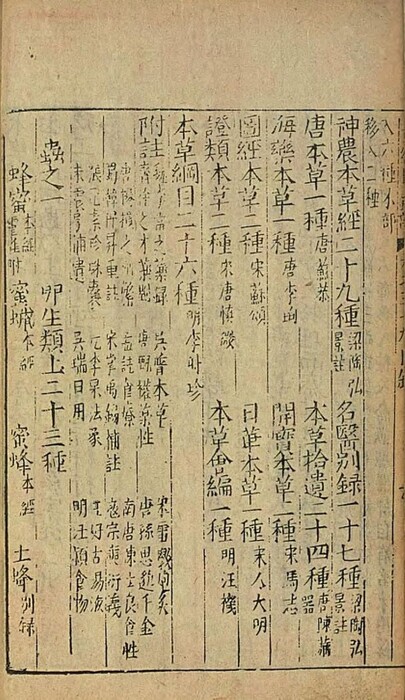 入六種木部
移入二種
神農本草經二十九種 梁陶弘景註 名醫別録一十七種 梁陶弘景註
唐本草一種 唐蘇恭 本草拾遺二十四種 唐陳藏器
海藥本草一種 唐李珣 開寶本草二種 宋馬志
圖經本草二種 宋蘇頌 日華本草一種 宋人大明
證類本草二種 宋唐慎微 本草會編一種 明汪機
本草綱目二十六種 明李時珍
附註 魏李當之藥録 吳普本草 宋雷斅炮炙
齊徐之才藥對 唐甄權藥性 唐孫思邈千金
唐楊損之刪繁 孟詵食療 南唐陳士良食性
蜀韓保昇重註 宋掌禹錫補註 寇宗奭衍義
張元素珍珠囊 元李杲法象 王好古湯液
朱震亨補遺 吳瑞日用 明汪穎食物
蟲之一 卵生類上二十三種
蜂蜜本經 靈雀附 蜜蠟本經 蜜蜂本經 土蜂別録